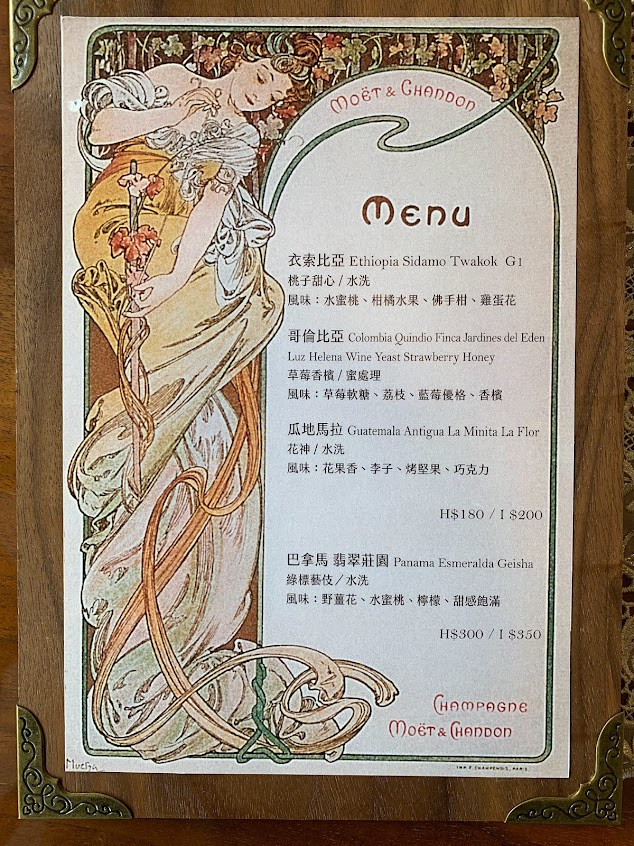 MOËT & CHANDON
MENU
衣索比亞 Ethiopia Sidamo Twakok G1
桃子甜心 / 水洗
風味：水蜜桃、柑橘水果、佛手柑、雞蛋花
哥倫比亞 Colombia Quindio Finca Jardines del Eden
Luz Helena Wine Yeast Strawberry Honey
草莓香檳 / 蜜處理
風味：草莓軟糖、荔枝、藍莓優格、香檳
瓜地馬拉 Guatemala Antigua La Minita La Flor
花神 / 水洗
風味：花果香、李子、烤堅果、巧克力
H$180 / I $200
巴拿馬 翡翠莊園 Panama Esmeralda Geisha
綠標藝伎 / 水洗
風味：野薑花、水蜜桃、檸檬、甜感飽滿
H$300 / I $350
CHAMPAGNE
MOËT & CHANDON
Mucha
IMP. F. CHAMPENOIS, PARIS.